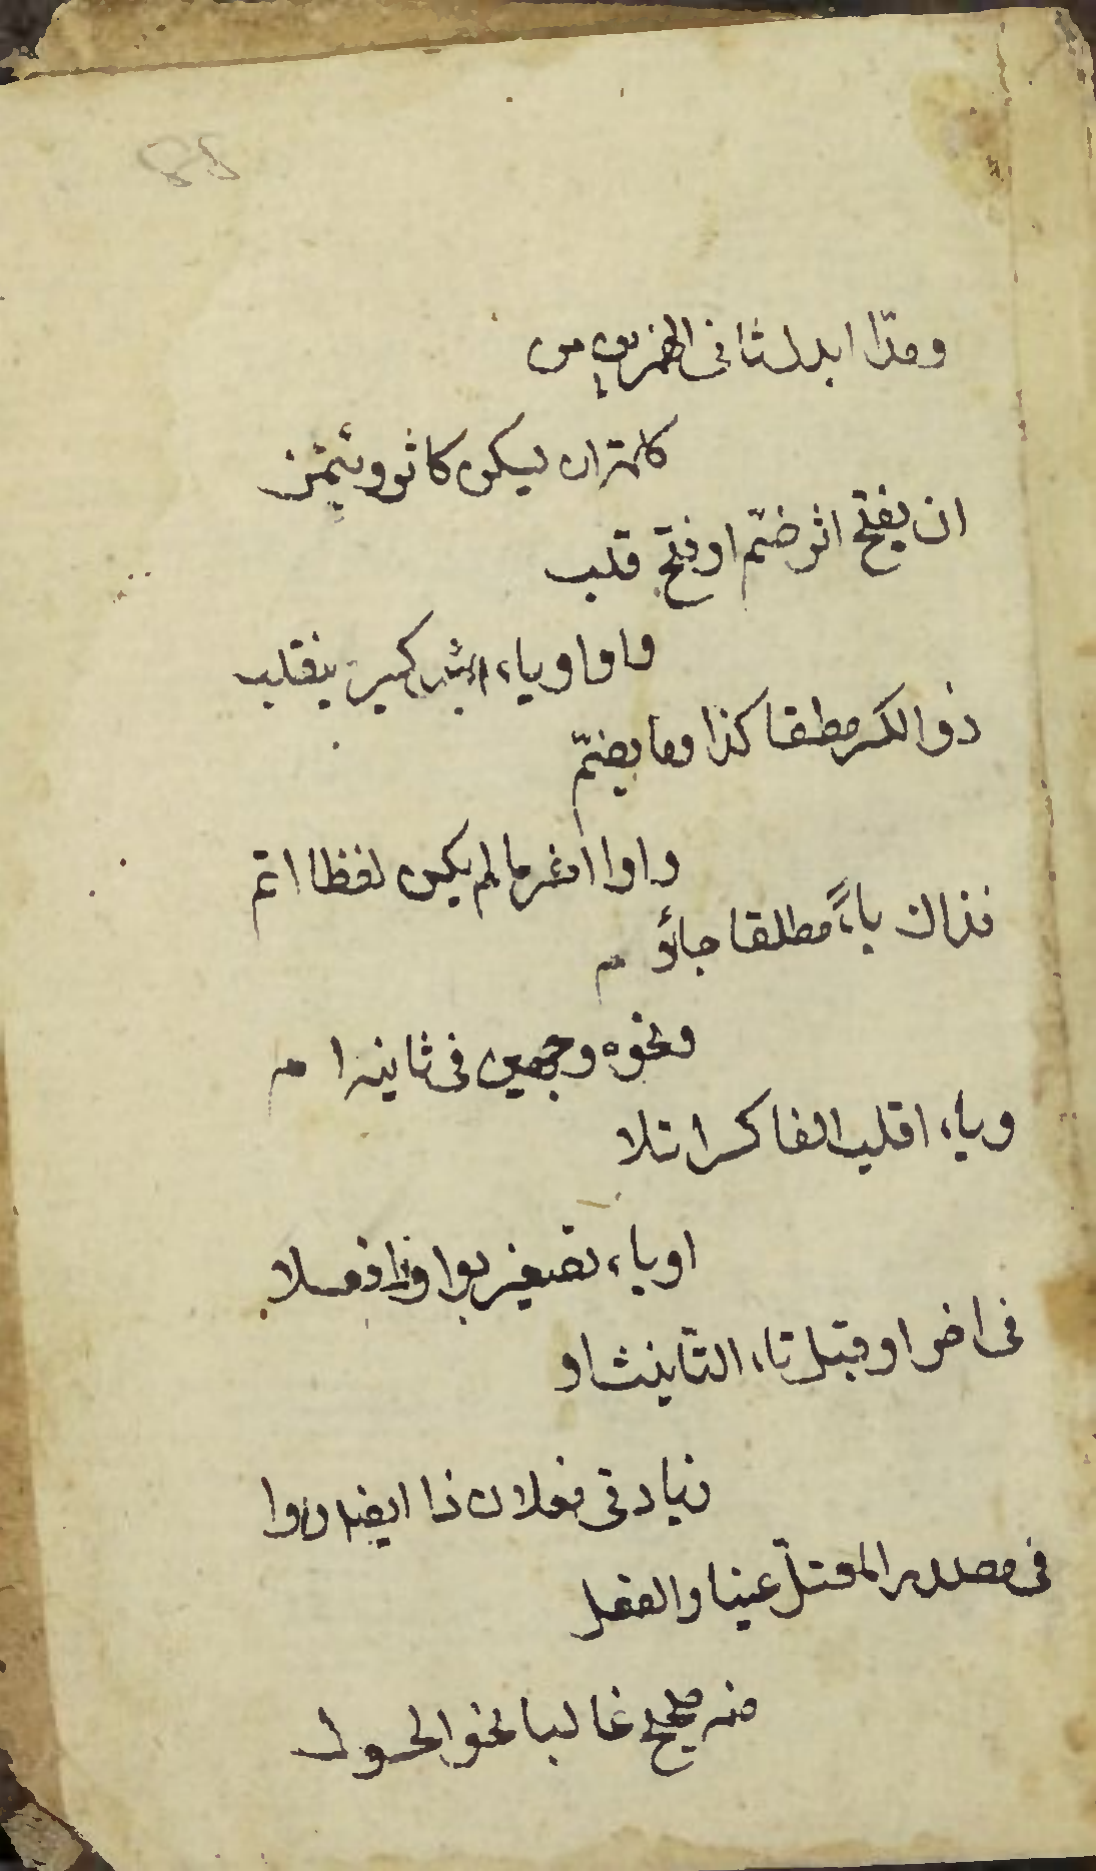 ومدّا ابدل ثانى الهمزين من
كلمة ان يسكن كاثر وئتمن
ان يفتح اثر ضمّ او فتح قلب
واوا وياء اثر كسر ينقلب
ذو الكسر مطقا كذا وما يضمّ
واوا اصر ما لم يكن لفظا اتم
فذاك ياءً مطلقا جا وٴم
ونحوه وجهين فى ثانيه ام
وياء اقلب الفا كسرا تلا
او ياء تصغير بواو ذا افعلا
فى اخر او قبل تاء التّانيث او
زيادتى فعلان ذا ايضا راوا
فى مصدر المعتلّ عينا والفعل
منه صحيح غالبا نحو الحول